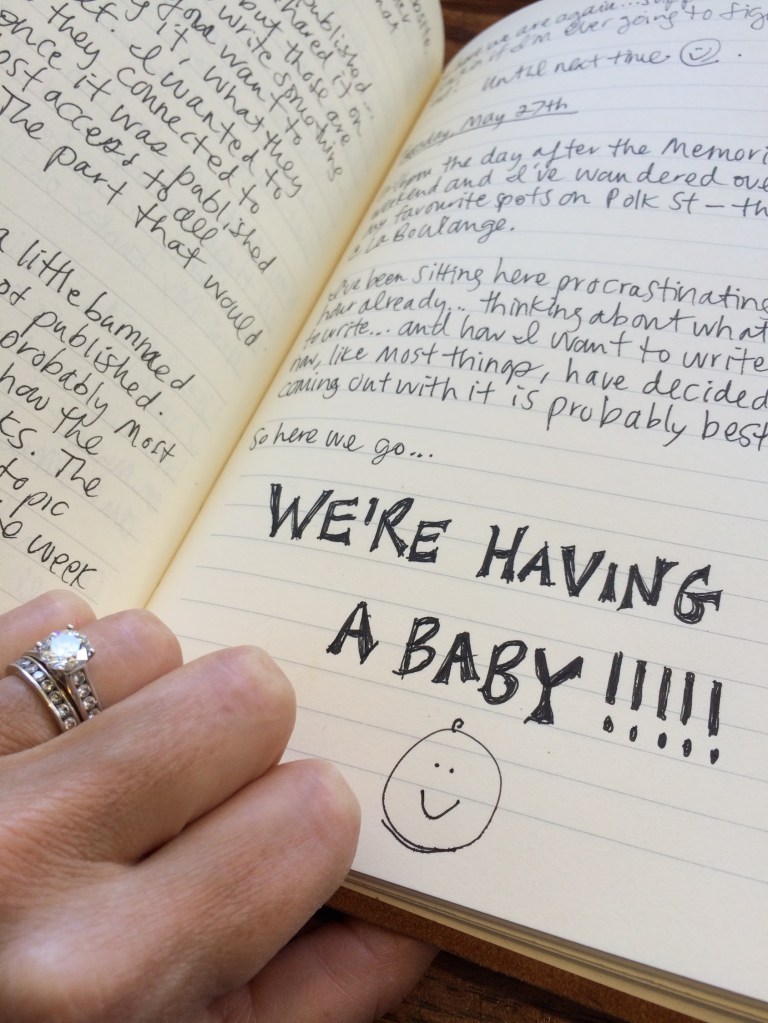 published...
shared it on
but those are
you want to write something
it, what they
I wanted to
they connected to
once it was published
lost access to all
The part that would
a little bummed
not published.
probably most
how the
The
topic
week
we are again...
if I'm ever going to
until next time ☺.
May 27th
the day after the
weekend and I've wandered
my favourite spots on Polk St –
La Boulange.
I've been sitting here procrastinating
hour already... thinking about what
to write... and how I want to write
now, like most things, have decided
coming out with it is probably best
So here we go...
WE'RE HAVING
A BABY !!!!!